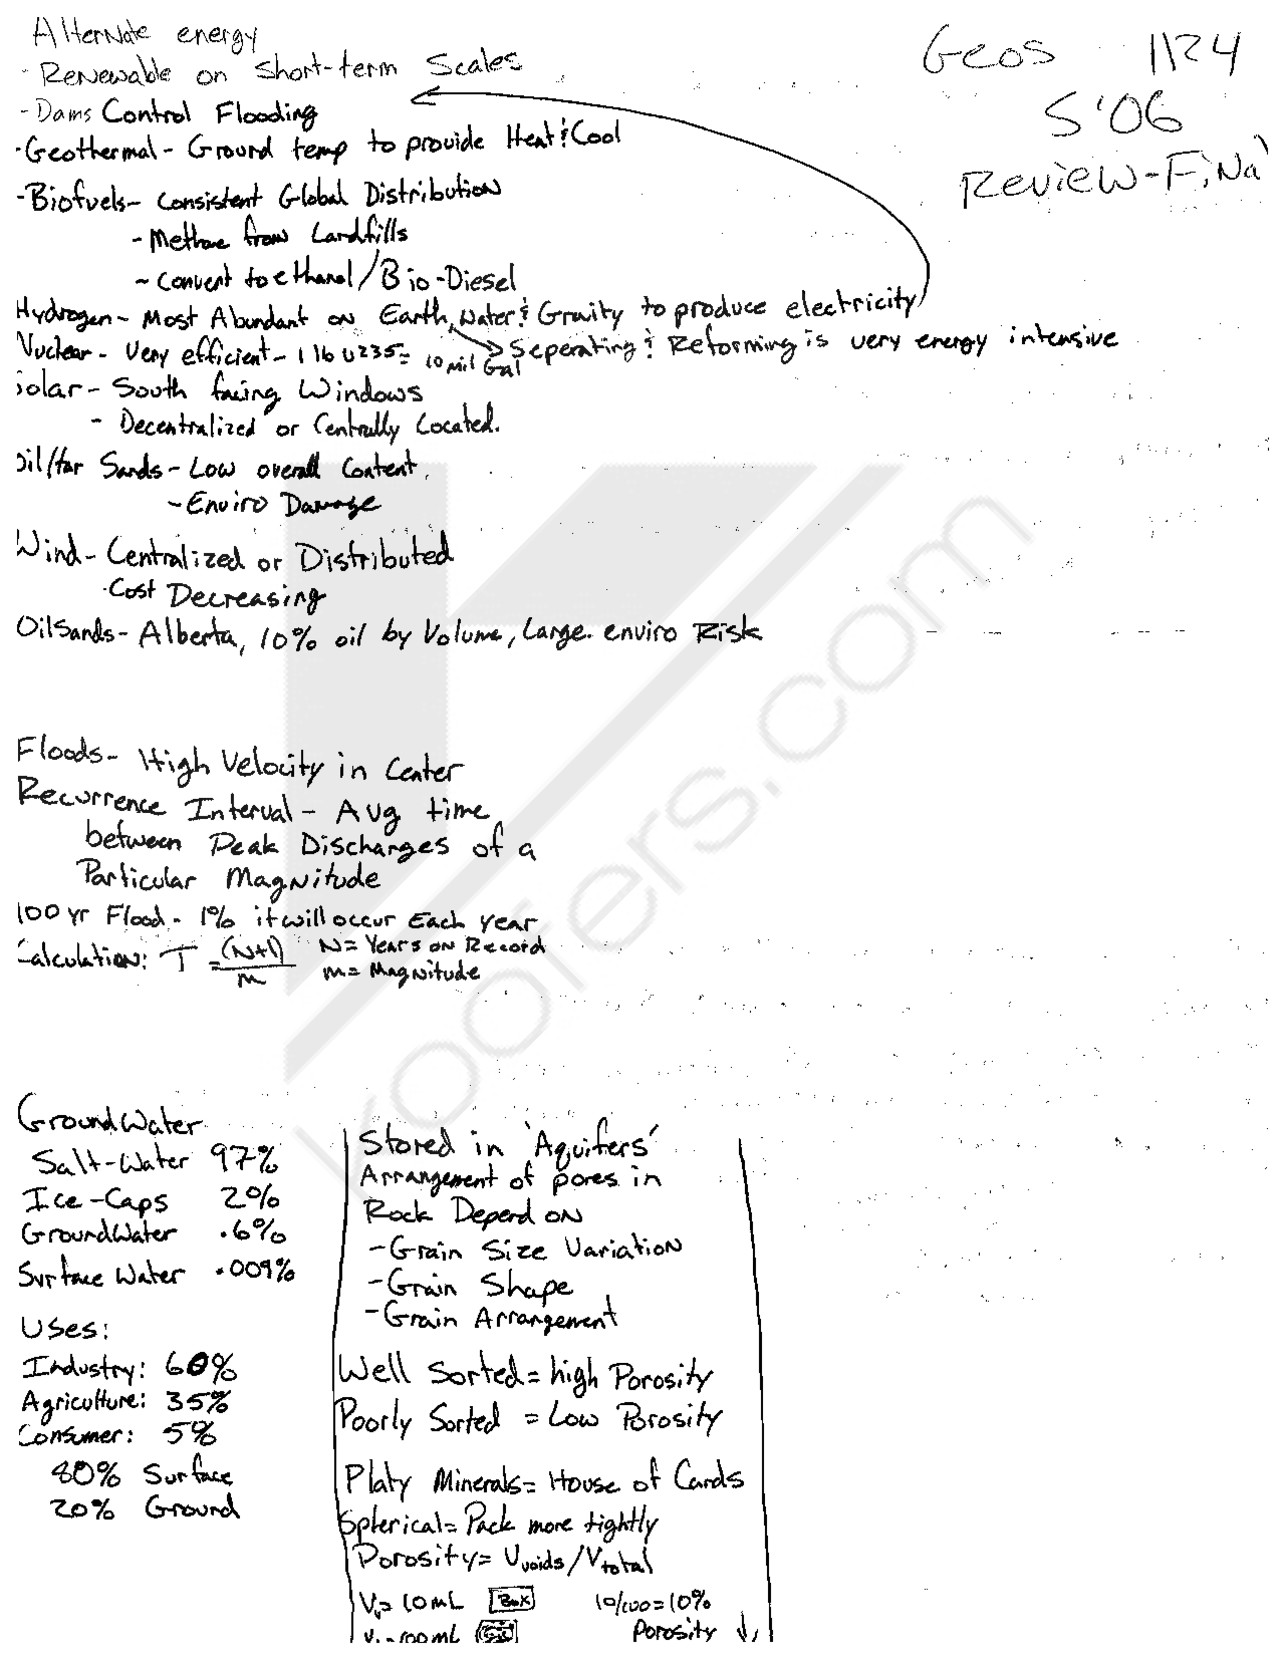 Alternate energy
- Renewable on Short-term Scales
- Dams Control Flooding
- Geothermal - Ground temp to provide Heat & Cool
- Biofuels - Consistent Global Distribution
- Methane from Landfills
- Convert to ethanol/Bio-Diesel
Hydrogen - Most Abundant on Earth, Water & Gravity to produce electricity
Nuclear - Very efficient - 1 lb U235 = 10 mil Gal
Seperating & Reforming is very energy intensive
Solar - South facing Windows
- Decentralized or Centrally Located.
Oil/tar Sands - Low overall Content.
- Enviro Damage
Wind - Centralized or Distributed
- Cost Decreasing
Oilsands - Alberta, 10% oil by Volume, Large enviro Risk
Geos 1124
S'06
Review-Final
Floods - High Velocity in Center
Recurrence Interval - Avg time
between Peak Discharges of a
Particular Magnitude
100 yr Flood - 1% it will occur Each year
Calculation: T = (N+1)/m
N = Years on Record
m = Magnitude
GroundWater
Salt-Water 97%
Ice-Caps 2%
GroundWater .6%
Surface Water .009%
Uses:
Industry: 60%
Agriculture: 35%
Consumer: 5%
80% Surface
20% Ground
Stored in 'Aquifers'
Arrangement of pores in
Rock Depend on
- Grain Size Variation
- Grain Shape
- Grain Arrangement
Well Sorted = high Porosity
Poorly Sorted = Low Porosity
Platy Minerals = House of Cards
Spherical = Pack more tightly
Porosity = Vvoids/Vtotal
Vv = 10mL Box 10/100 = 10%
Porosity
koofers.com